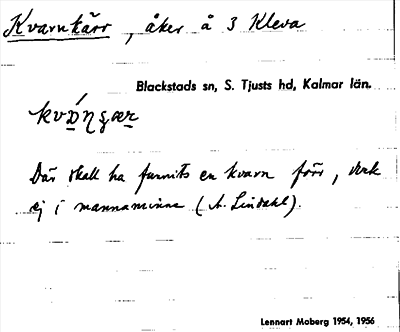 Kvarnkärr, åker å 3 Kleva
Blackstads sn, S. Tjusts hd, Kalmar län.
Där skall ha funnits en kvarn förr, dock
ej i mannaminne (A. Lindahl).
Lennart Moberg 1954, 1956